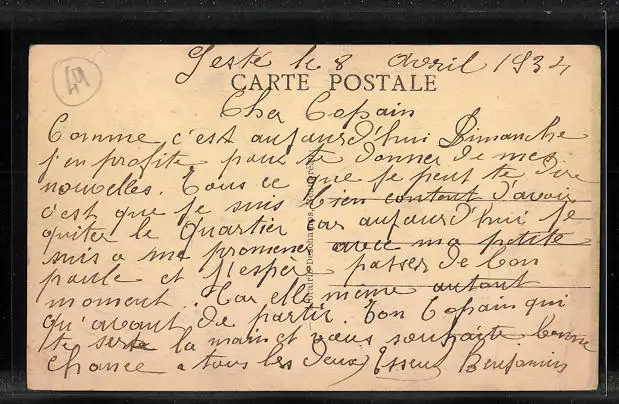 49
Gesté le 8 avril 1934
CARTE POSTALE
Cher Copain
Comme c'est aujourd'hui Dimanche
j'en profite pour te donner de mes
nouvelles. Tous ce que je peut te dire
c'est que je suis bien content d'avoir
quiter le Quartier car aujourd'hui je
suis a me promener avec ma petite
paule et j'espère passer de bon
moment. Car elle même autant
qu'avant de partir. Ton Copain qui
te serre la main et vous souhaite bonne
chance a tous les deux Benjamin